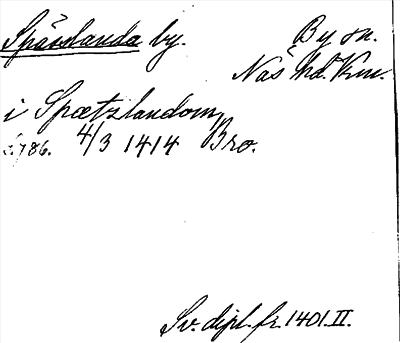 Spässlanda by. By sn.
Näs hd. Krm.
i Spætzlandom,
s. 786. 4/3 1414 Bro.
Sv. dipl. fr. 1401. II.